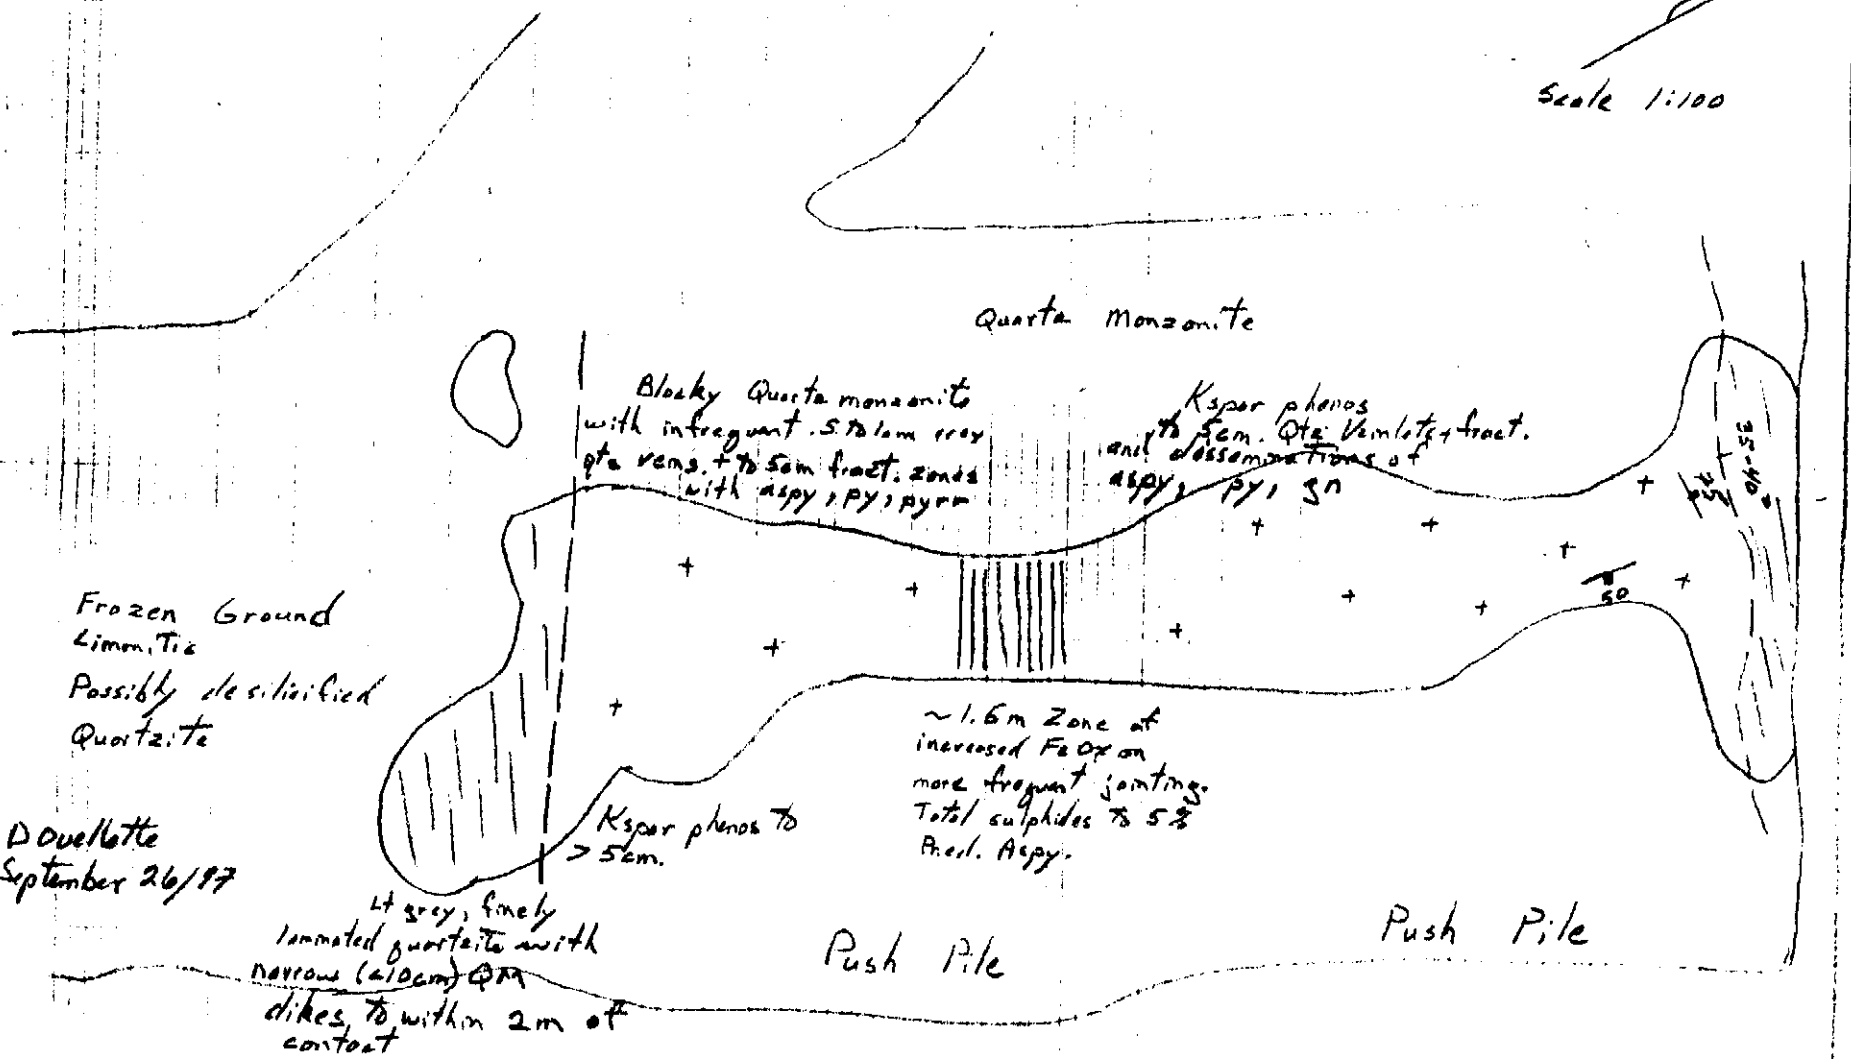 Scale 1:100
Quartz Monzonite
Blocky Quartz monzonite
with infrequent .5 to 1cm grey
qtz veins. + to 5cm fract. zones
with aspy, py, pyrr
Kspar phenos
to 5cm. Qtz Veinlets, fract.
and disseminations of
aspy, py, gn
35-40
50
Frozen Ground
Limonitic
Possibly desilicified
Quartzite
~1.5m Zone of
increased FeOx on
more frequent jointing.
Total sulphides to 5%
Pred. Aspy.
Kspar phenos to
> 5cm.
D Ouellette
September 26/97
Lt grey, finely
laminated quartzite with
narrow (<10cm) QM
dikes, to within 2m of
contact
Push Pile
Push Pile